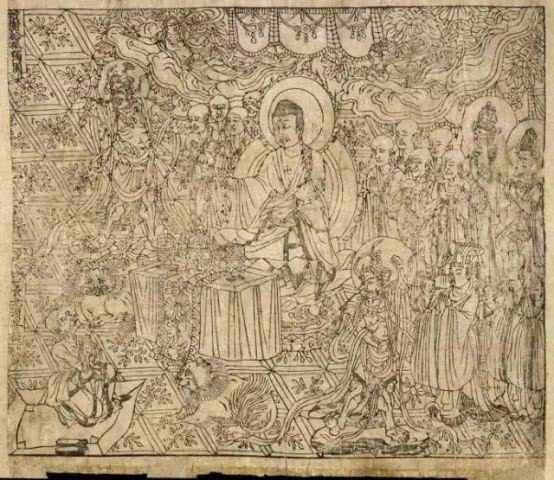 祇樹給孤獨園